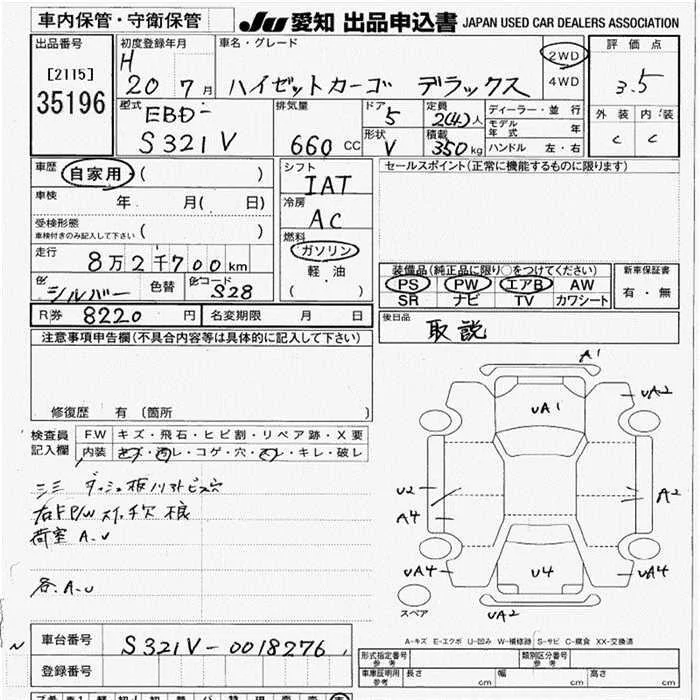 車内保管・守衛保管
JU 愛知 出品申込書 JAPAN USED CAR DEALERS ASSOCIATION
出品番号
[2115]
35196
初度登録年月
H
20 7月
車名・グレード
ハイゼットカーゴ デラックス
2WD
4WD
評価点
3.5
外装 内装
C C
型式
EBD-
S321V
排気量
660 CC
ドア
5
形状
V
定員
2(4)人
積載
350kg
ディーラー・並行
モデル年式 年
ハンドル 左・右
車歴
自家用・( )
車検 年 月( 日)
受検形態
車検付きのみ記入して下さい ( )
走行
8万2千700km
色
シルバー
色替
色コード
S28
シフト
IAT
冷房
AC
燃料
ガソリン
軽油
( )
セールスポイント(正常に機能するものに限ります)
装備品(純正品に限り○をつけてください)
PS PW エアB AW
SR ナビ TV カワシート
新車保証書
有・無
R券 8220 円
名変期限 月 日
後日品
取説
注意事項申告欄(不具合内容等は具体的に記入して下さい)
修復歴 有 〔箇所 〕
検査員
記入欄
F.W キズ・飛石・ヒビ割・リペア跡・X要
内装 キズ・汚レ・コゲ・穴・スレ・キレ・破レ
荷室 A.U
各.A.U
A1
UA1
UA2
U2
A4
A2
UA4
U4
UA4
スペア
UA2
A-キズ E-エクボ U-凹み W-補修跡 S-サビ C-腐食 XX-交換済
車台番号 S321V-0018276
登録番号
形式指定番号
参考
類別区分番号
参考
車庫証明用
参考
長さ cm
幅 cm
高さ cm